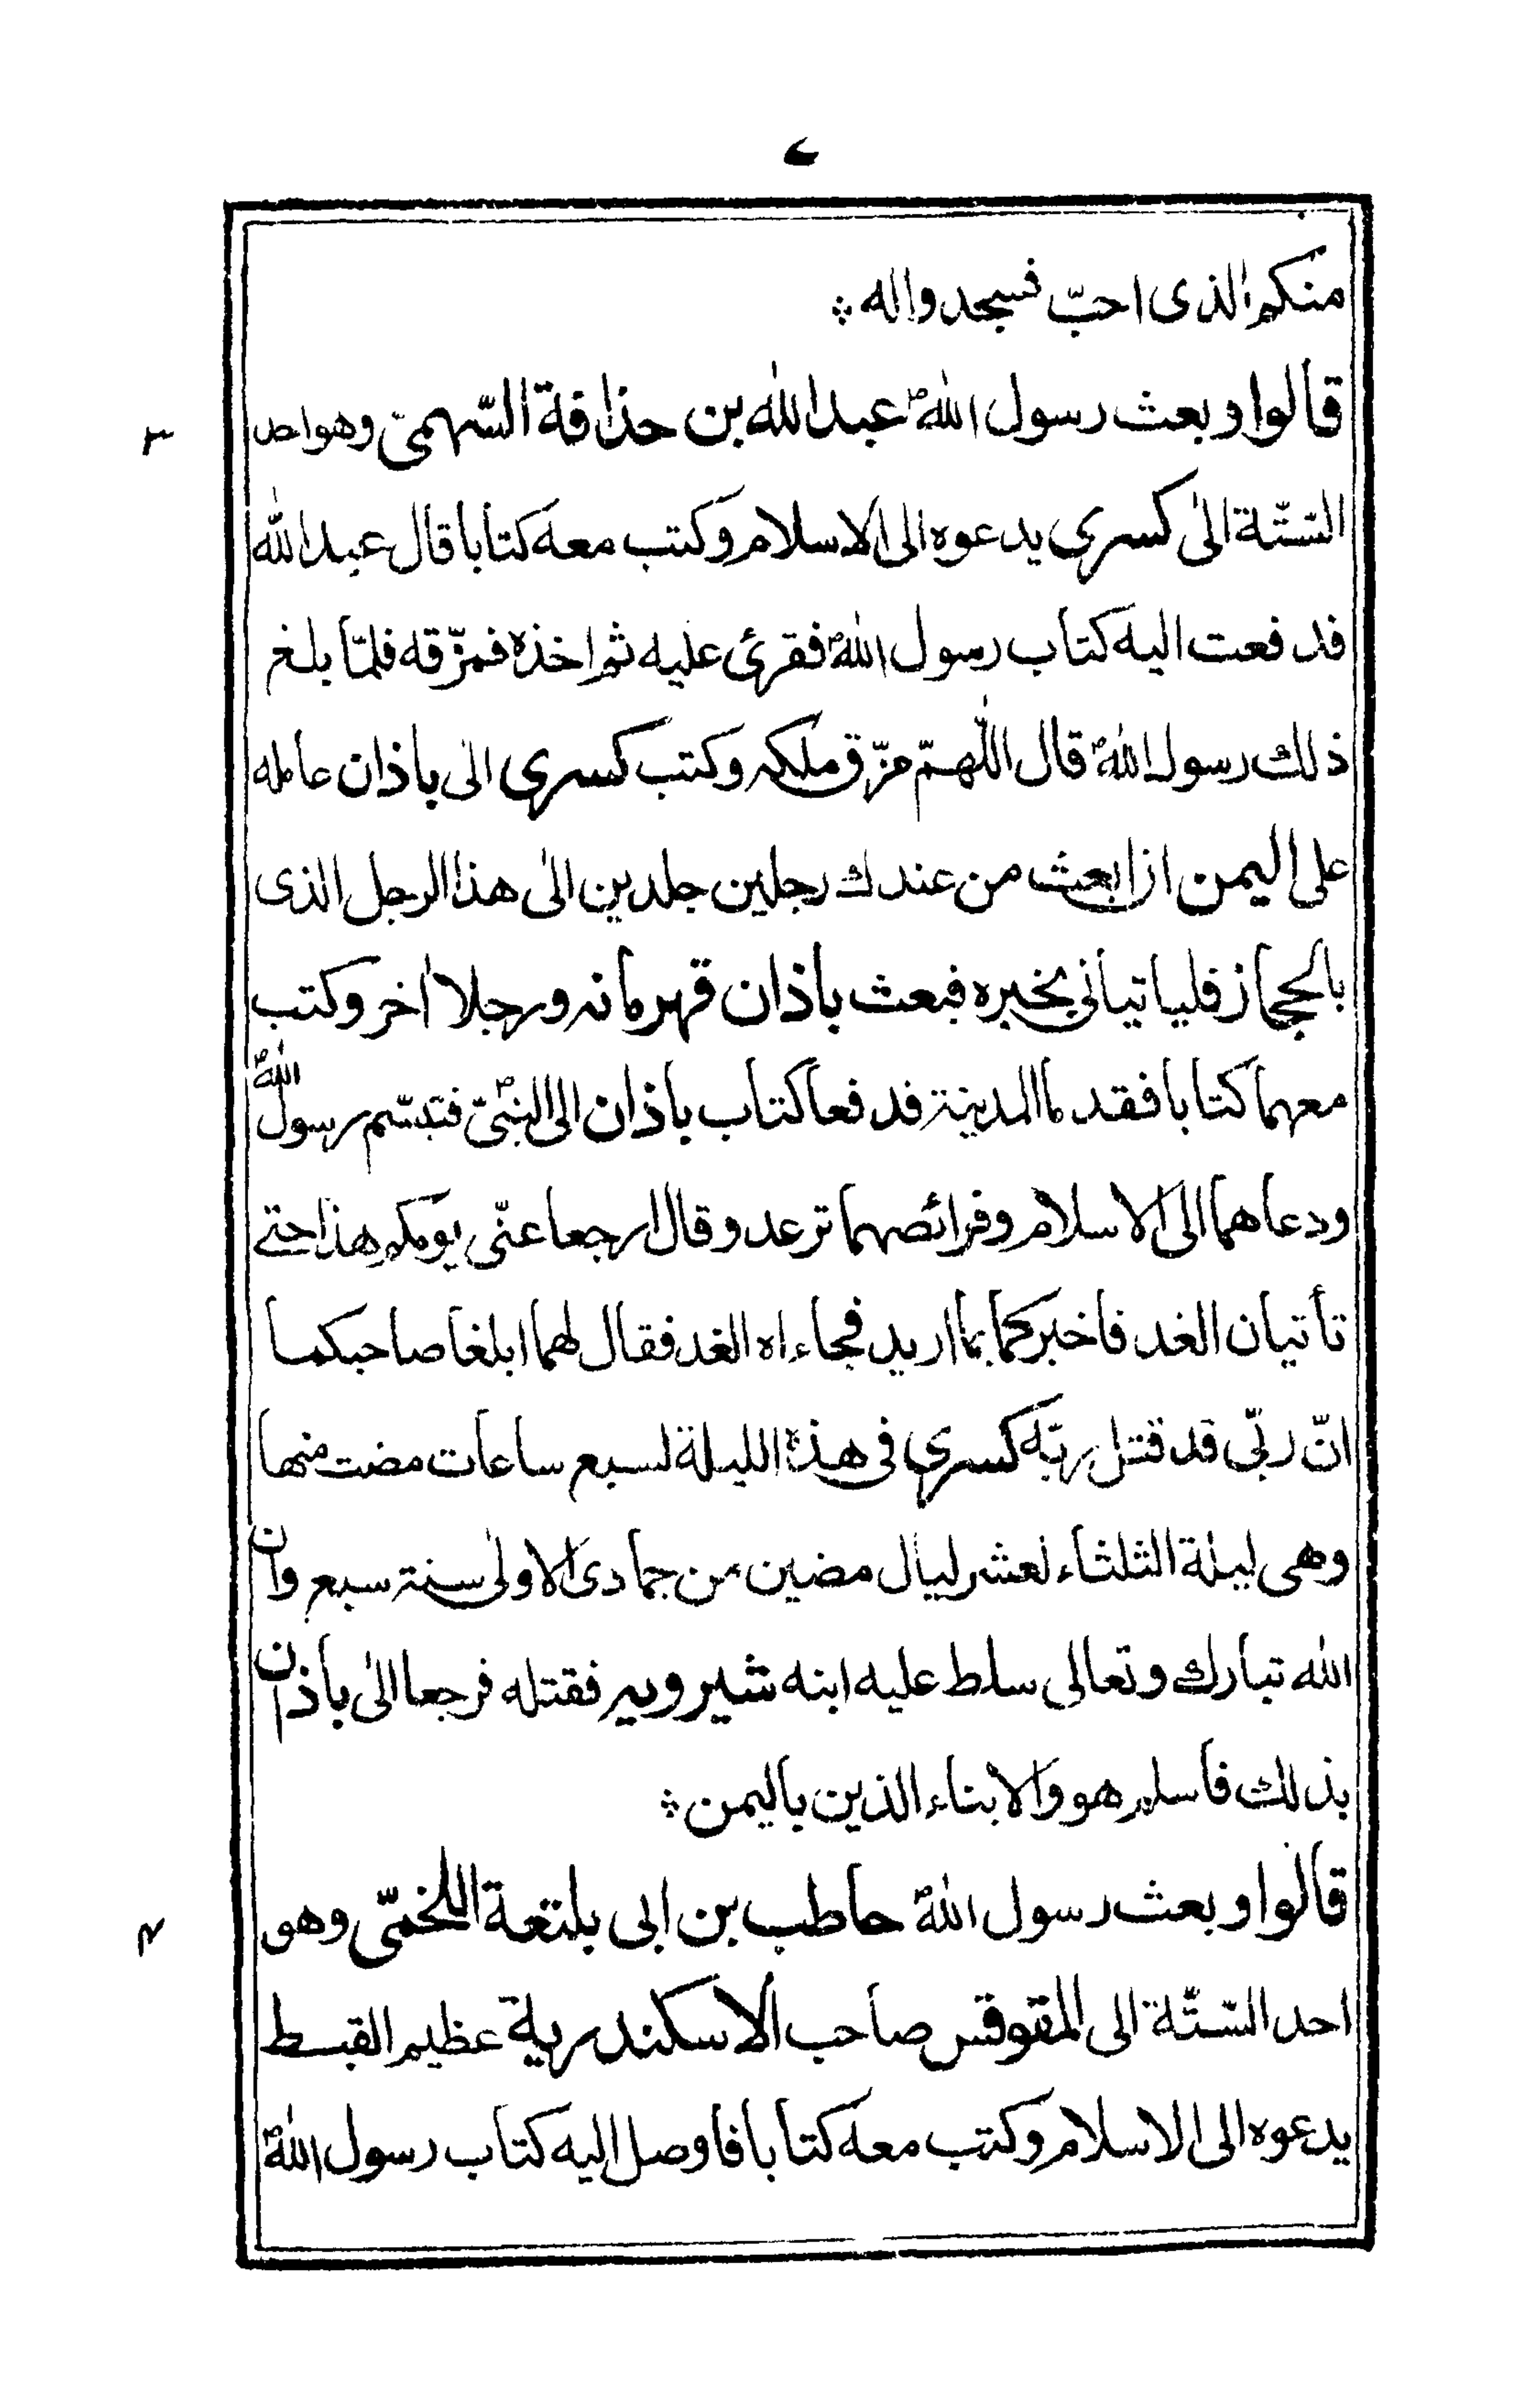 ٧
منكم الذى احبّ فسجدوا له ؞
٣
قالوا وبعث رسول اللهؐ عبدالله بن حذافة السّهمىّ وهو احد
السّتّة الىٰ كسرى يدعوه الى الاسلام وكتب معه كتابا قال عبدالله
فدفعت اليه كتاب رسول اللهؐ فقرئ عليه ثم اخذه فمزّقه فلمّا بلغ
ذلك رسول اللهؐ قال اللّهمّ مزّق ملكه وكتب كسرى الى باذان عامله
على اليمن ان ابعث من عندك رجلين جلدين الىٰ هذا الرجل الذى
بالحجاز فلياتيانى بخبره فبعث باذان قهرمانه ورجلا اٰخر وكتب
معهما كتابا فقدما المدينة فدفعا كتاب باذان الى النبىّؐ فتبسّم رسول اللهؐ
ودعاهما الى الاسلام وفرائصهما ترعد وقال ارجعا عنّى يومكم هذا حتے
تأتيان الغد فاخبركما بما اريد فجاءاه الغد فقال لهما ابلغا صاحبكما
انّ ربّى قد قتل ربّه كسرى فى هذه الليلة لسبع ساعات مضت منها
وهى ليلة الثلثاء لعشر ليال مضين من جمادى الاولىٰ سنة سبع وان
الله تبارك وتعالى سلط عليه ابنه شيرويه فقتله فرجعا الىٰ باذان
بذلك فاسلم هو والابناء الذين باليمن ؞
٤
قالوا وبعث رسول اللهؐ حاطب بن ابى بلتعة اللخمىّ وهو
احد السّتّة الى المقوقس صاحب الاسكندرية عظيم القبط
يدعوه الى الاسلام وكتب معه كتابا فاوصل اليه كتاب رسول اللهؐ